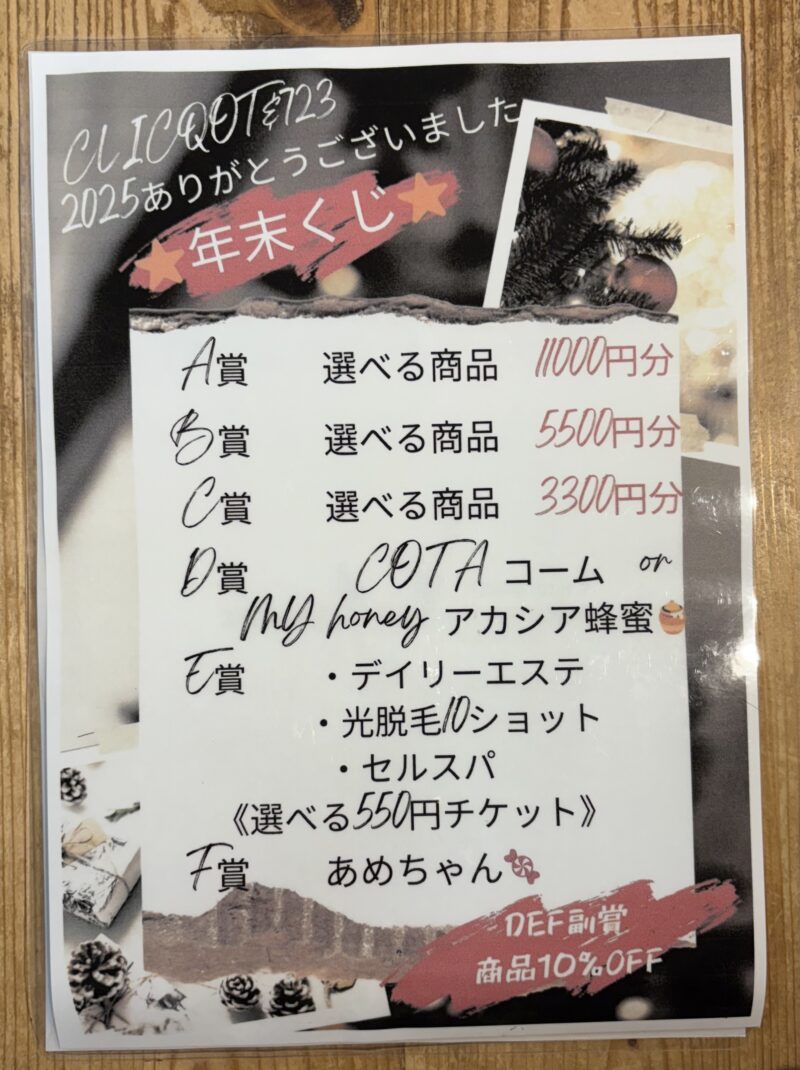 CLICQOT&723
2025ありがとうございました
年末くじ
A賞 選べる商品 11000円分
B賞 選べる商品 5500円分
C賞 選べる商品 3300円分
D賞 COTA コーム or
MY honey アカシア蜂蜜
E賞 ・デイリーエステ
・光脱毛10ショット
・セルスパ
《選べる550円チケット》
F賞 あめちゃん
DEF副賞
商品10%OFF